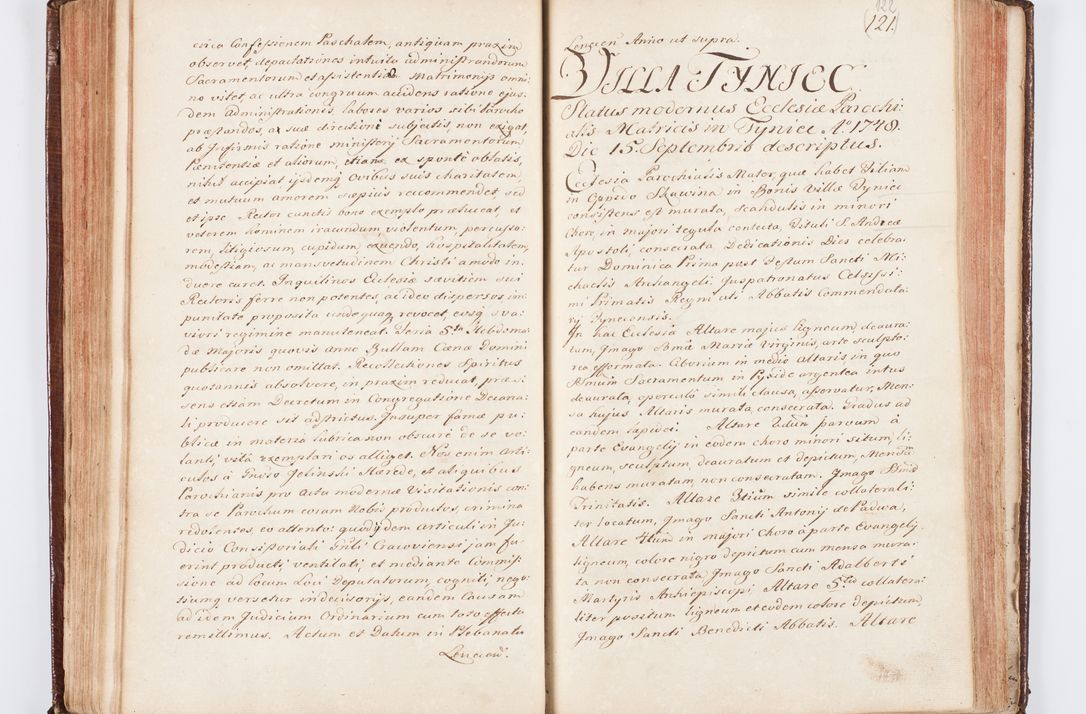 circa Confessionem Paschalem, antiquam praxim
observet, depactationes intuitu administrandorum
Sacramentorum et assistentiæ Matrimonijs omni:
no vitet, ac ultra congruum accidens ratione ejus:
dem administrationis, labores varios sibi Parocho
præstandos, ac suæ directioni subjectis, non exigat,
ab Infirmis ratione ministerij Sacramentorum
Pœnitentiæ et aliorum, etiam ex sponte oblatis,
nihil accipiat ijsdemq, ovibus suis charitatem,
et mutuum amorem sæpius recommendet, sed
et ipse Rector cunctis bono exemplo præluceat, et
veterem hominem iracundum, violentum, percusso:
rem, litigiosum, cupidum exuendo, hospitalitatem,
modestiam, ac mansvetudinem Christi amodo in:
duere curet. Inquilinos Ecclesiæ sævitiem sui
Rectoris ferre non potentes, ac ideo dispersos im:
punitate proposita undequaq, revocet, eosq, sva:
viori regimine manuteneat. Feria 5ta Hebdoma:
dæ Majoris quovis anno Bullam Cœnæ Domini
publicare non omittat. Recollectiones Spiritus
quotannis absolvere, in praxim reducat, præ:
sens etiam Decretum in Congregatione Decana:
li producere sit adstrictus. Insuper famæ pu:
blicæ in materia lubrica non obscurè de se vo:
lanti, vitâ exemplari os alliget. Nos enim arti:
culos à Gndso Jelinski Hærede, et aliquibus
Parochianis pro actu modernæ Visitationis con:
tra se Parochum coram Nobis productos, crimina
redolentes, eo attento: quod ijdem articuli in Ju:
dicio Consistoriali Gnli Cracoviensi jam fu:
erint producti ventilati, et mediante Commis:
sione ad locum Loci Deputatorum, cogniti, nego:
tiumq versetur in decisorijs, eandem Causam
ad idem Judicium Ordinarium cum toto effectu
remittimus. Actum et Datum in Plebanatu
Lenciens.
122
(121)
Lencien Anno ut supra.
VILLA TYNIEC
Status modernus Ecclesiæ Parochi:
alis Matricis in Tyniec Ao 1748.
Die 15. Septembris descriptus.
Ecclesia Parochialis Mater, quæ habet Filiam
in Oppido Skawina in Bonis Villæ Tyniec
consistens est murata, scandulis in minori
Choro, in majori tegula contecta, Tituli S. Andreæ
Apostoli, consecrata. Dedicationis Dies celebra:
tur Dominica Prima post Festum Sancti Mi:
chaelis Archangeli. Juspatronatus Celsissi:
mi Primatis Regni uti Abbatis Commendata:
rij Tynecensis.
In hac Ecclesia Altare majus ligneum, deaura:
tum, Imago Bmæ Mariæ Virginis, arte sculpto:
rea efformata. Ciborium in medio altaris in quo
SSmum Sacramentum in Pyxide argentea intus
deaurata, operculo simili clausa, asservatur, Men:
sa hujus Altaris murata, consecrata. Gradus ad
eandem lapidei. Altare 2dum parvum à
parte Evangelij in eodem choro minori situm, li:
gneum, sculptum, deauratum et depictum, Mensam
habens muratam, non consecratam. Imago SSmæ
Trinitatis. Altare 3tium simile collaterali:
ter locatum, Imago Sancti Antonij de Padua,
Altare 4tum in majori Choro à parte Evangelij
ligneum, colore nigro depictum cum mensa mura:
ta non consecrata, Imago Sancti Adalberti
Martyris Archiepiscopi, Altare 5to collatera:
liter positum ligneum et eodem colore depictum,
Imago Sancti Benedicti Abbatis. Altare